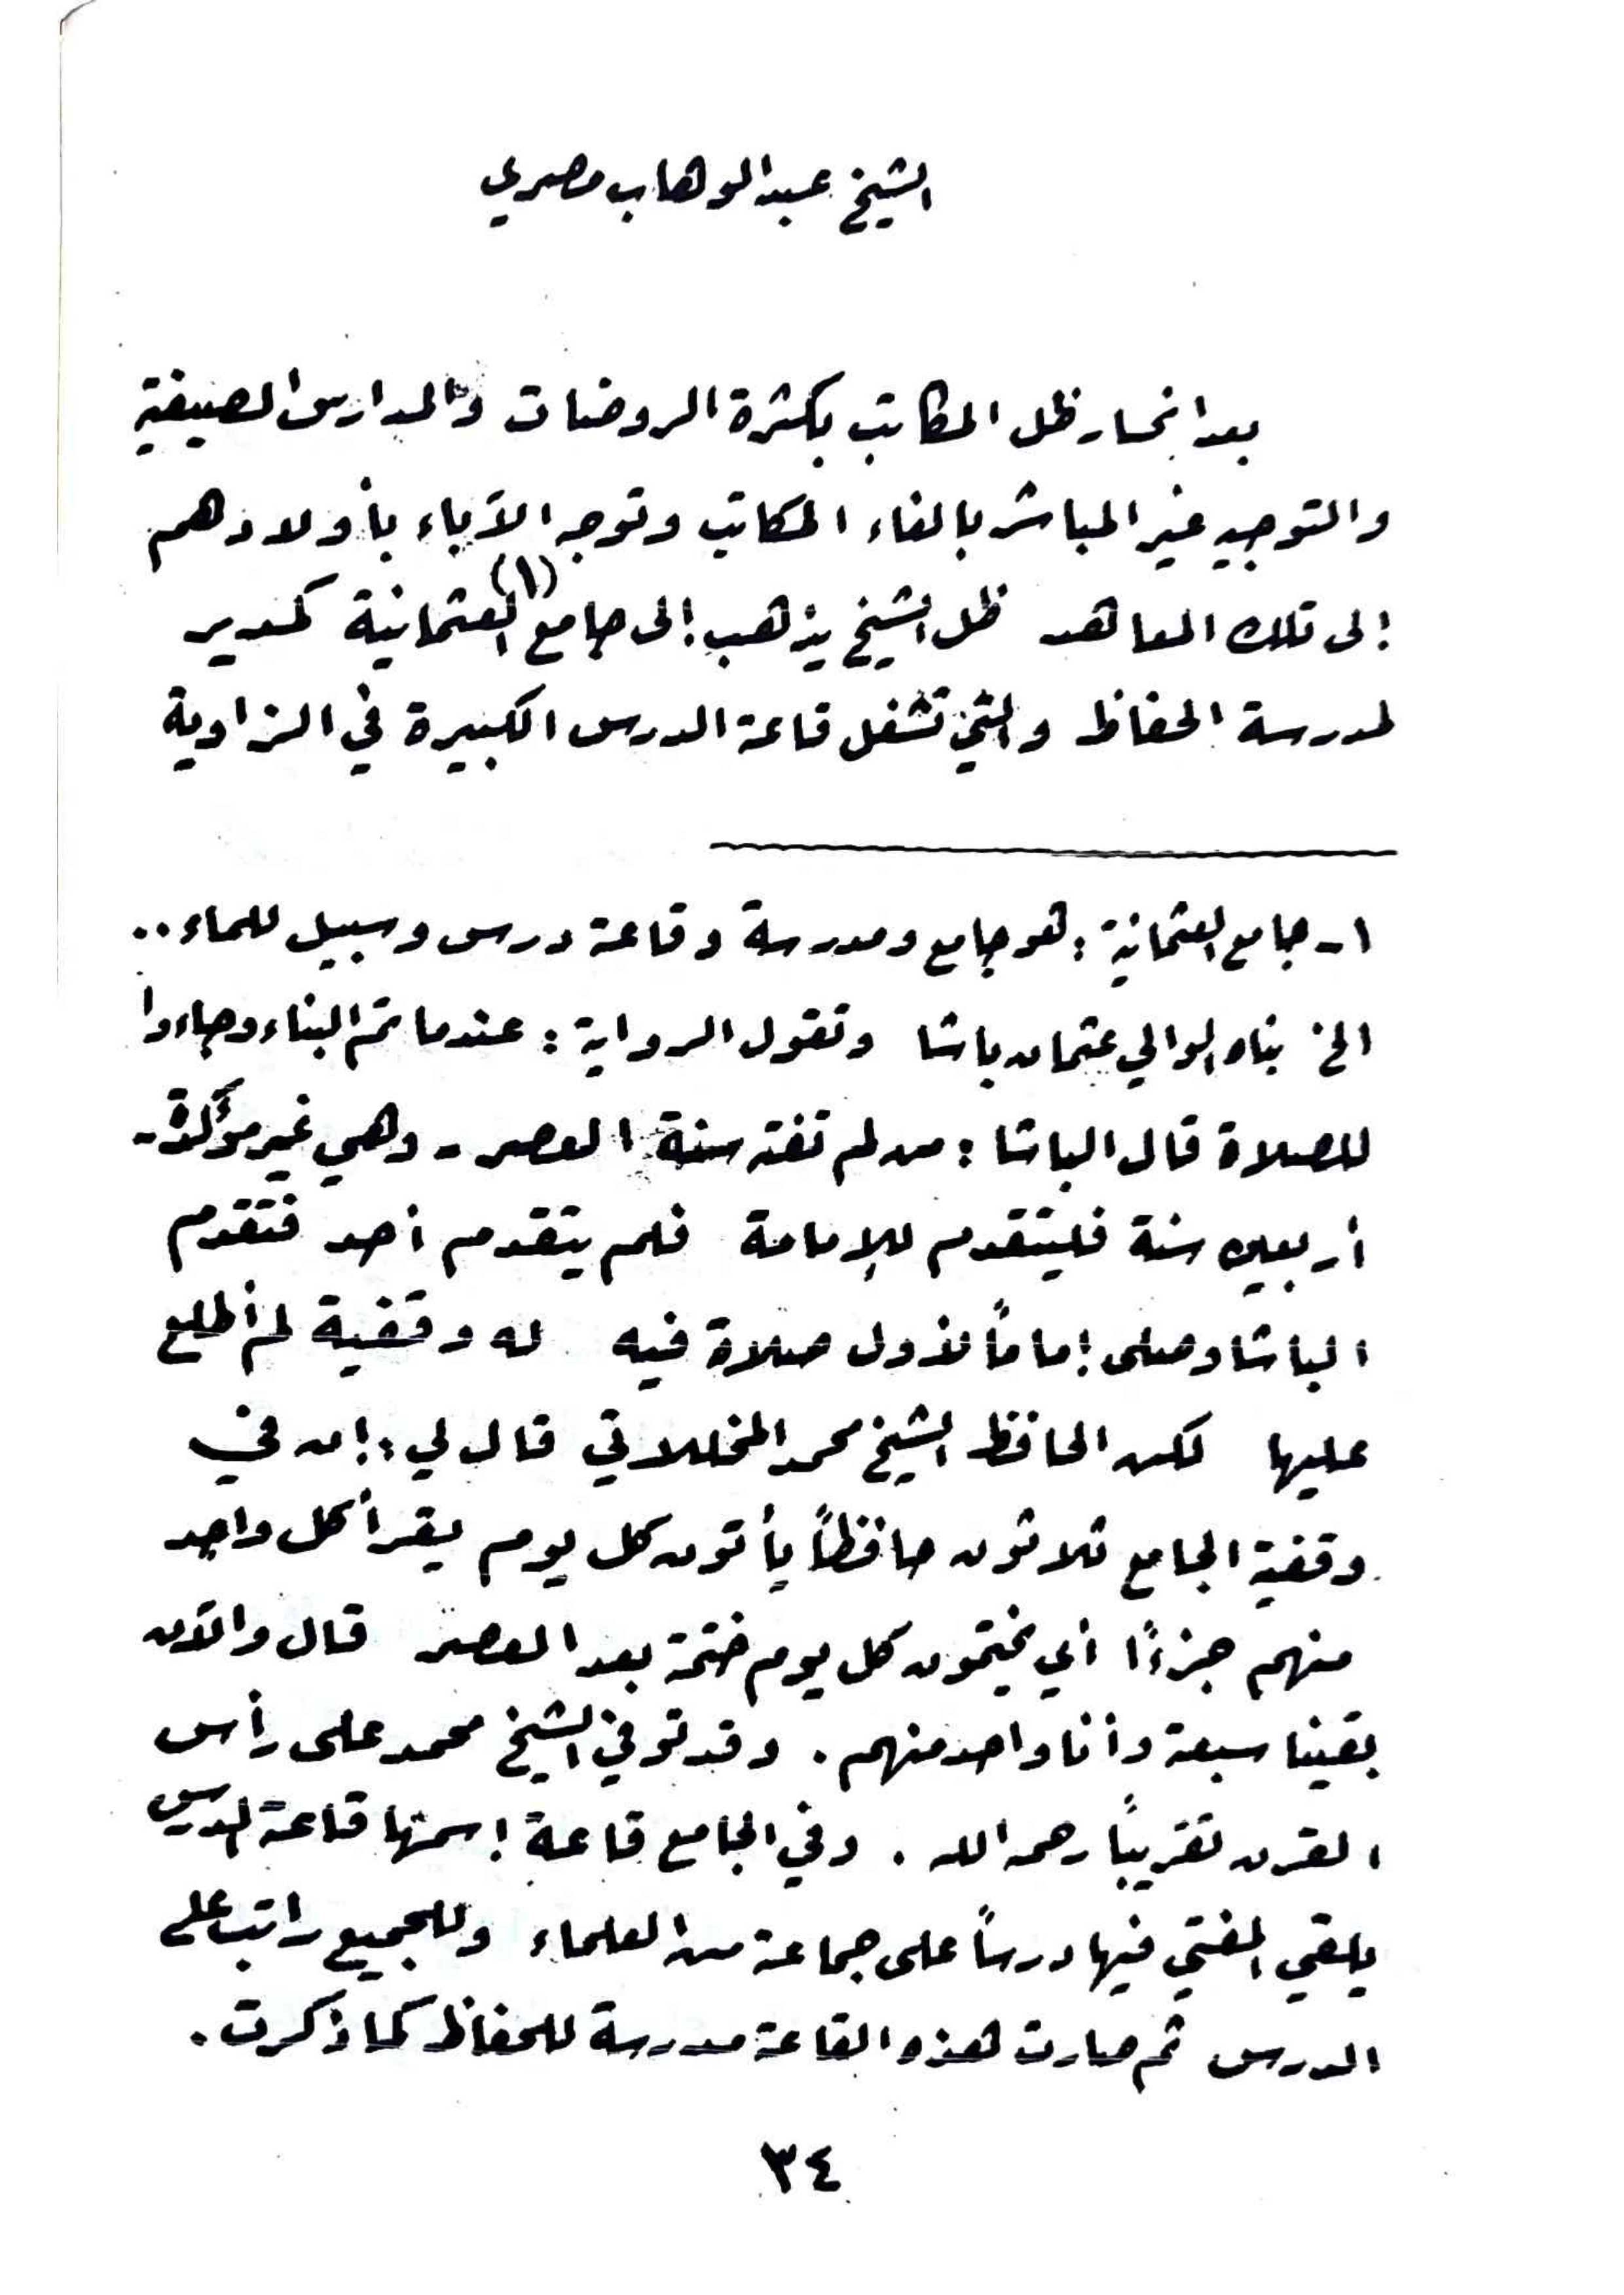 الشيخ عبدالوهاب مصري
بعد انحسار ظل المكاتب بكثرة الروضات والمدارس الصيفية
والتوجيه غير المباشر بالغاء المكاتب وتوجه الآباء بأولادهم
إلى تلك المعاهد ظل الشيخ يذهب إلى جامع العثمانية (١) كمدير
لمدرسة الحفاظ والتي تشغل قاعة الدرس الكبيرة في الزاوية
١- جامع العثمانية : هو جامع ومدرسة وقاعة درس وسبيل للماء ..
الخ بناه الوالي عثمان باشا وتقول الرواية : عندما تم البناء وجاءوا
للصلاة قال الباشا : من لم تفته سنة العصر - وهي غير مؤكدة -
أربعين سنة فليتقدم للإمامة فلم يتقدم أحد فتقدم
الباشا وصلى إماماً لأول صلاة فيه له وقفية لم أطلع
عليها لكن الحافظ الشيخ محمد المخللاتي قال لي : إن في
وقفية الجامع ثلاثون حافظاً يأتون كل يوم يقرأ كل واحد
منهم جزءًا أي يختمون كل يوم ختمة بعد العصر قال والآن
بقينا سبعة وأنا واحد منهم . وقد توفي الشيخ محمد على رأس
القرن تقريباً رحمه الله . وفي الجامع قاعة إسمها قاعة الدرس
يلقي المفتي فيها درساً على جماعة من العلماء وللجميع راتب على
الدرس ثم صارت هذه القاعة مدرسة للحفاظ كما ذكرت .
٣٤